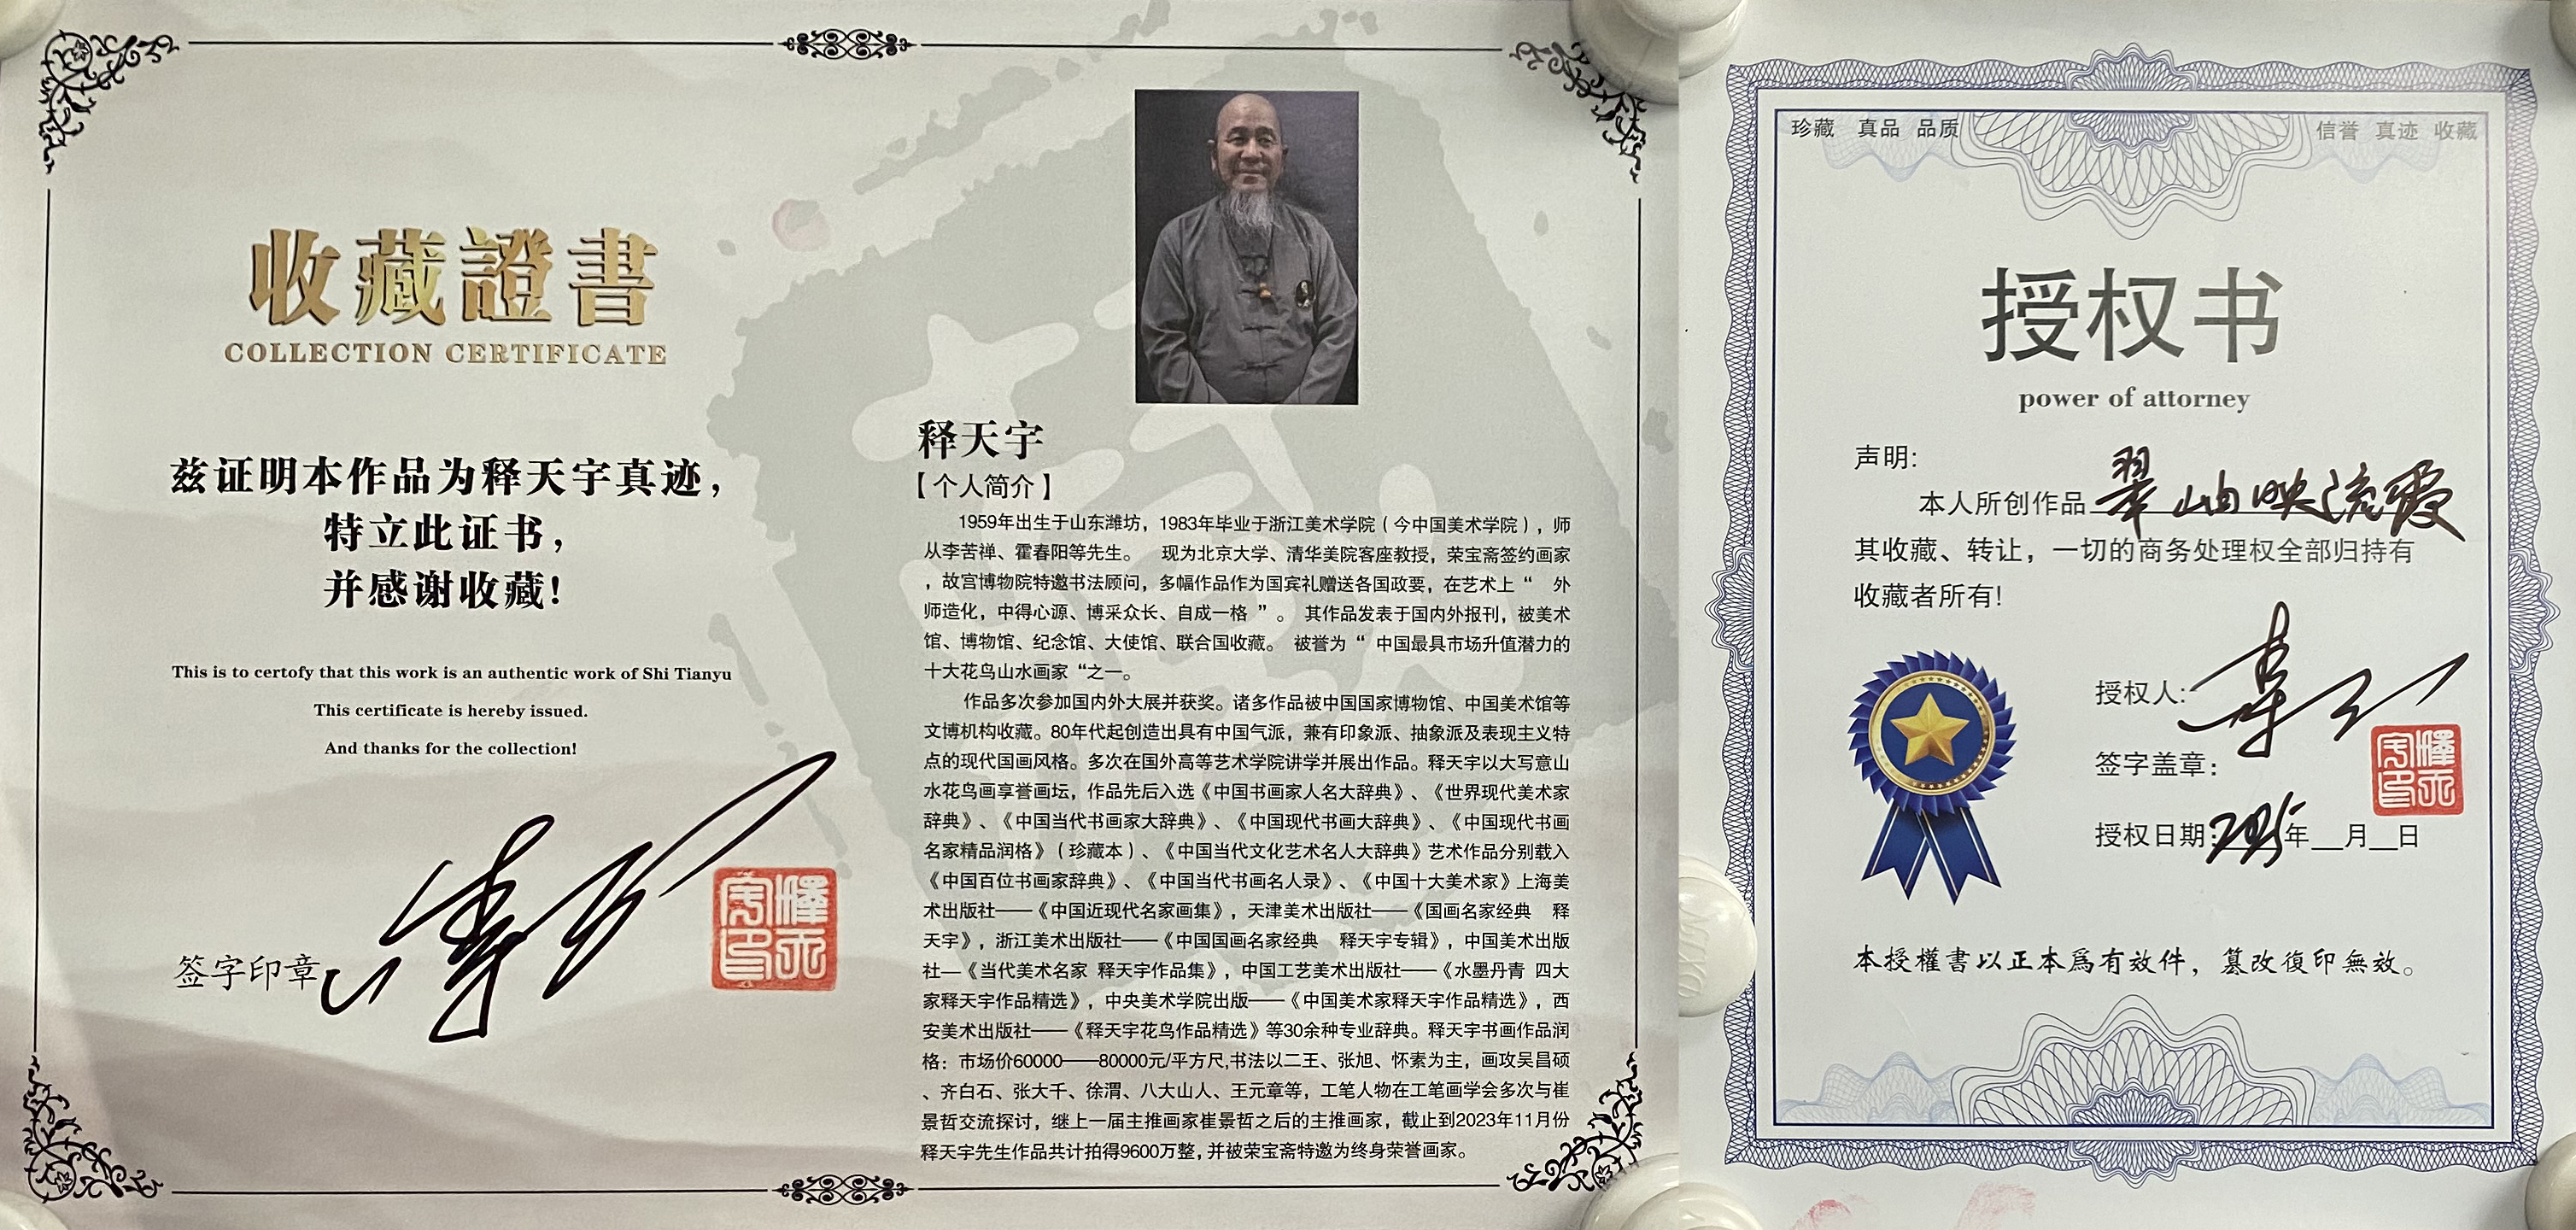 收藏證書
COLLECTION CERTIFICATE
兹证明本作品为释天宇真迹，
特立此证书，
并感谢收藏！
This is to certofy that this work is an authentic work of Shi Tianyu
This certificate is hereby issued.
And thanks for the collection!
签字印章
释天宇印
释天宇
【个人简介】
1959年出生于山东潍坊，1983年毕业于浙江美术学院（今中国美术学院），师
从李苦禅、霍春阳等先生。 现为北京大学、清华美院客座教授，荣宝斋签约画家
，故宫博物院特邀书法顾问，多幅作品作为国宾礼赠送各国政要，在艺术上“ 外
师造化，中得心源、博采众长、自成一格 ”。 其作品发表于国内外报刊，被美术
馆、博物馆、纪念馆、大使馆、联合国收藏。 被誉为“ 中国最具市场升值潜力的
十大花鸟山水画家 “之一。
作品多次参加国内外大展并获奖。诸多作品被中国国家博物馆、中国美术馆等
文博机构收藏。80年代起创造出具有中国气派，兼有印象派、抽象派及表现主义特
点的现代国画风格。多次在国外高等艺术学院讲学并展出作品。释天宇以大写意山
水花鸟画享誉画坛，作品先后入选《中国书画家人名大辞典》、《世界现代美术家
辞典》、《中国当代书画家大辞典》、《中国现代书画大辞典》、《中国现代书画
名家精品润格》（珍藏本）、《中国当代文化艺术名人大辞典》艺术作品分别载入
《中国百位书画家辞典》、《中国当代书画名人录》、《中国十大美术家》上海美
术出版社——《中国近现代名家画集》，天津美术出版社——《国画名家经典 释
天宇》，浙江美术出版社——《中国国画名家经典 释天宇专辑》，中国美术出版
社—《当代美术名家 释天宇作品集》，中国工艺美术出版社——《水墨丹青 四大
家释天宇作品精选》，中央美术学院出版——《中国美术家释天宇作品精选》，西
安美术出版社——《释天宇花鸟作品精选》等30余种专业辞典。释天宇书画作品润
格：市场价60000——80000元/平方尺,书法以二王、张旭、怀素为主，画攻吴昌硕
、齐白石、张大千、徐渭、八大山人、王元章等，工笔人物在工笔画学会多次与崔
景哲交流探讨，继上一届主推画家崔景哲之后的主推画家，截止到2023年11月份
释天宇先生作品共计拍得9600万整，并被荣宝斋特邀为终身荣誉画家。
珍藏 真品 品质
信誉 真迹 收藏
授权书
power of attorney
声明:
本人所创作品翠岫映流霞
其收藏、转让，一切的商务处理权全部归持有
收藏者所有！
授权人:
签字盖章:
释天宇印
授权日期:2025年__月__日
本授權書以正本爲有效件，篡改復印無效。